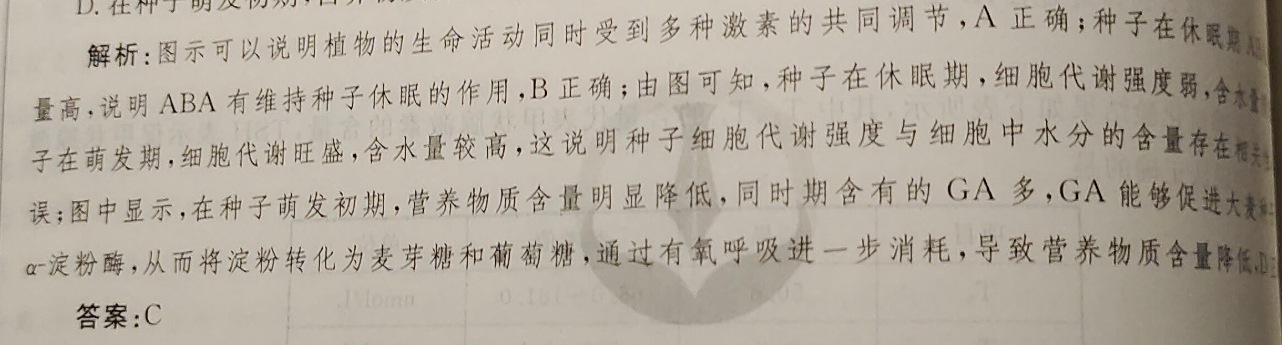 D. 在种子萌发初期,
解析:图示可以说明植物的生命活动同时受到多种激素的共同调节,A 正确;种子在休眠期
量高,说明 ABA 有维持种子休眠的作用,B 正确;由图可知,种子在休眠期,细胞代谢强度弱,含水量
子在萌发期,细胞代谢旺盛,含水量较高,这说明种子细胞代谢强度与细胞中水分的含量存在相关
误;图中显示,在种子萌发初期,营养物质含量明显降低,同时期含有的 GA 多,GA 能够促进大麦
α-淀粉酶,从而将淀粉转化为麦芽糖和葡萄糖,通过有氧呼吸进一步消耗,导致营养物质含量降低,D
答案:C